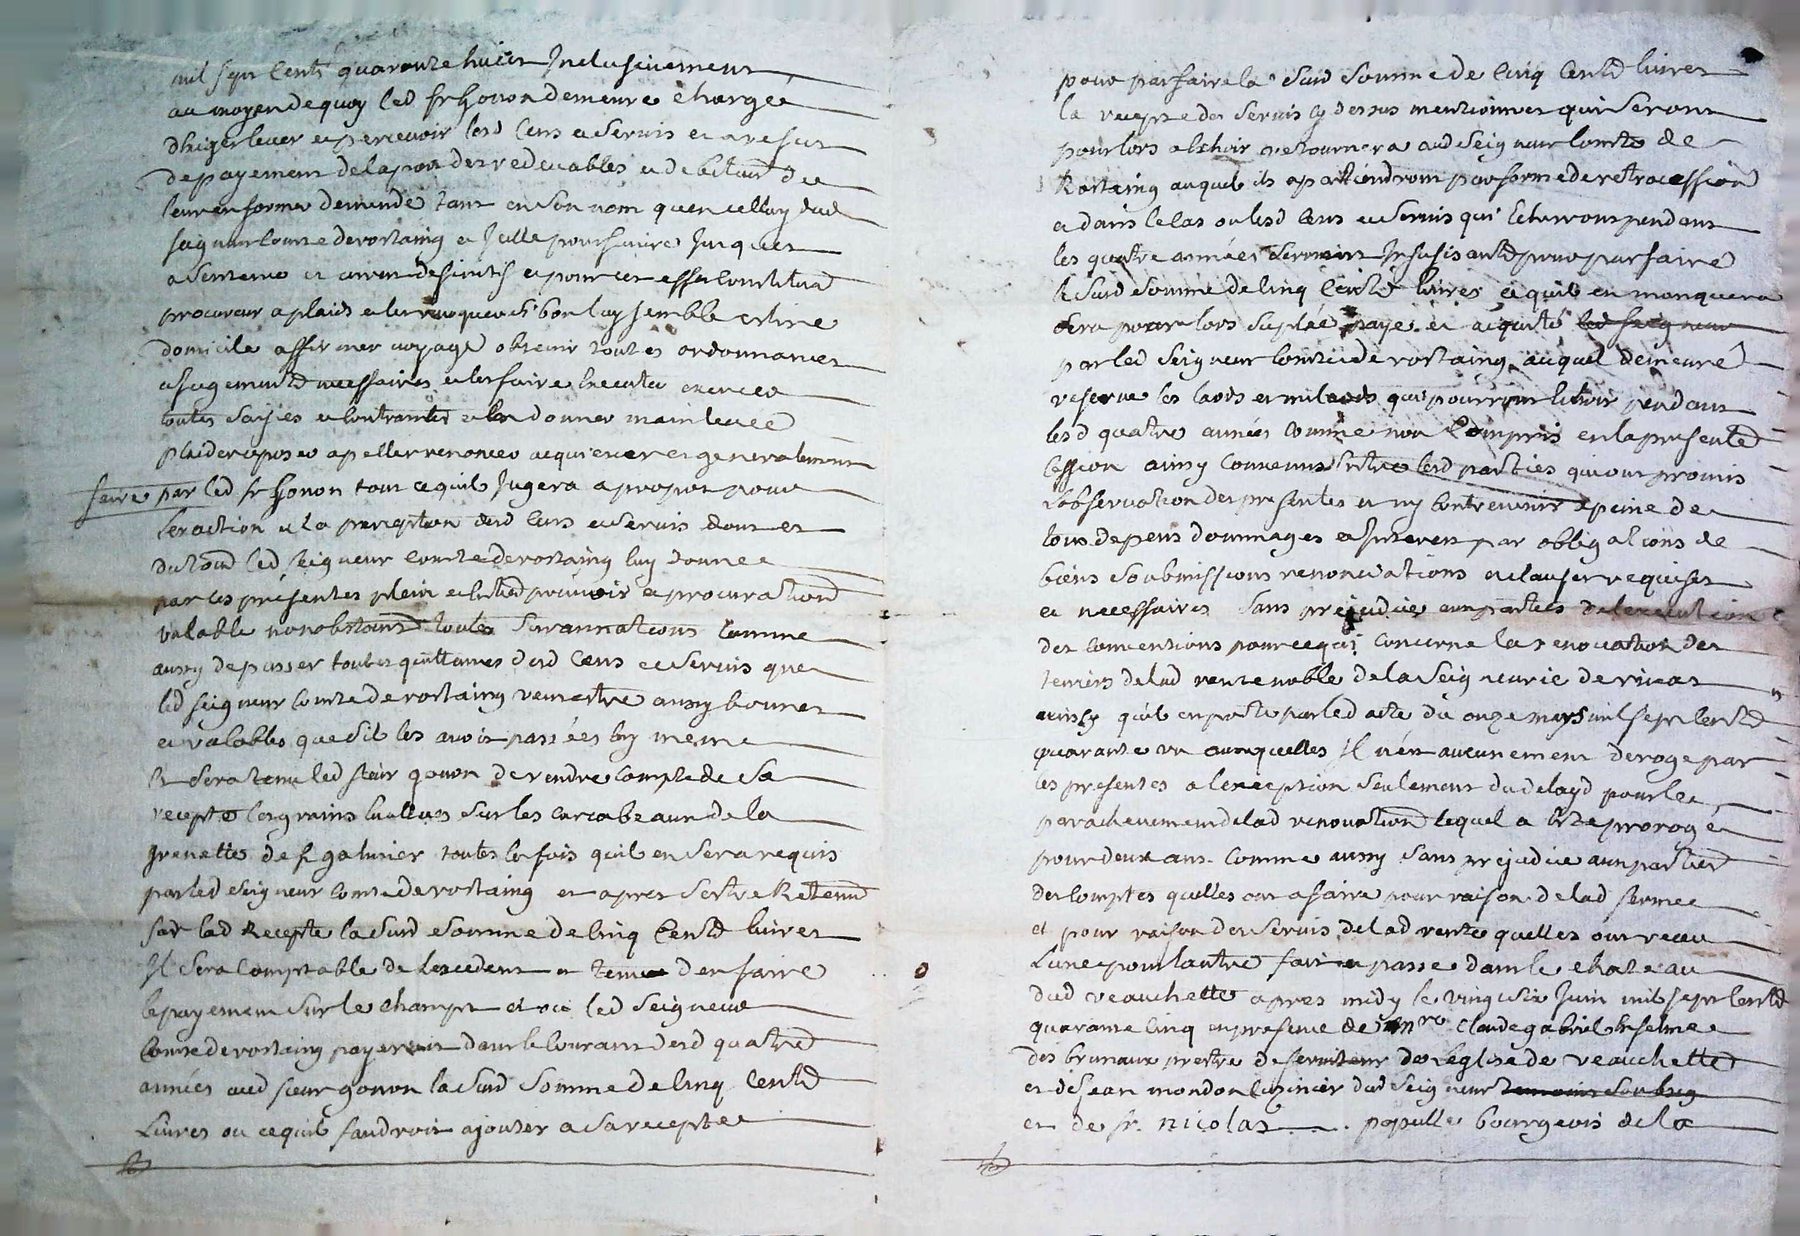 mil sept Cents quarante huict Inclusivement
au moyen de quoy led sr gonon demeure chargée
dhiger lever et percevoir lesd Cens et servis et a refus
de payement de la part des redevables et debiteurs de
leur en former demende tant en son nom qu'en celluy dud
seigneur Comte de rostaing et Icelle poursuivre Jusques
a sentence et arrest definitif et pour cet effet Constituer
procureur a plaids et les revoquer si bon luy semble eslire
domicile affirmer voyage obtenir toutes ordonnances
et Jugements necessaires et les faire Executer exercer
toutes saisies et Contraintes et en donner mainlevée
plaider oposer apeller renoncer acquiescer et generalement
faire par led sr gonon tout ce quil Jugera a propos pour
lexaction et la perception desd Cens et servis dont et
du tout led seigneur Comte de rostaing luy donne
par ces presentes plein et entier pouvoir et procuration
valable nonobstant toutes surannations Comme
aussy de passer toutes quittances desd Cens et servis que
led seigneur Comte de rostaing veut estre aussy bonnes
et valables que sil les avoit passées luy meme
Et sera tenu led sieur gonon de rendre Compte de sa
recepte les grains Evallues sur les carcabeaux de la
grenette de st galmier toutes les fois quil en sera requis
par led seigneur Comte de rostaing et apres sestre Retenu
sur lad Recepte la susd somme de Cinq Cents livres
Il sera Comptable de Lexcedent et tenu den faire
le payement sur le champt et ou led seigneur
Comte de rostaing payeroit dans le Courant desd quatre
années aud sieur gonon la susd somme de Cinq Cents
Livres ou ce quil faudroit ajouter a sa recepte
pour parfaire la susd somme de Cinq Cents livres
la recepte des servis cy dessus mentionnes qui seront
pour lors a Echoir retournera aud seigneur Comte de
Rostaing auquel ils apartiendront par forme de retrocession
et dans le cas ou lesd Cens et servis qui Echerront pendant
les quatre années seroient Insufisants pour parfaire
la susd somme de Cinq Cents livres ce quil en manquera
sera pour lors suplée paye et acquité led seigneur
par led seigneur Comte de rostaing auquel demeure
reserve les laods et milaods qui pourront Echoir pendant
lesd quatre années Comme non Compris en la presente
Cession ainsy Convenus Entre lesd parties qui ont promis
L'observation des presentes et ny Contrevenir a peine de
tous depens dommages et Interets par obligations de
biens soubmissions renonciations et clauses requises
et necessaires sans prejudice aux parties de lexecution
des conventions pour ce qui concerne la renovation des
terriers delad rente noble de la seigneurie de rivas
ainsy quil en porte par led acte du onze mars mil sept Cents
quarante un auxquelles Il n'est aucunement deroge par
les presentes a lexception seulement du delayd pour le
parachevement delad renovation lequel a Eté prorogé
pour deux ans Comme aussy sans prejudice aux parties
des Comptes quelles ont a faire pour raison delad ferme
et pour raison des servis delad rente quelles ont receu
Lune pour lautre fait et passe dans le chateau
dud veauchette apres midy le vingt six Juin mil sept Cents
quarante Cinq en presence de mre Claude gabriel Anselme
des brunaux prestre deserviteur de leglise de veauchette
et de Jean mondon Cuisinier dud seigneur temoins soubsig
et de sr. nicolas populle bourgeois de la